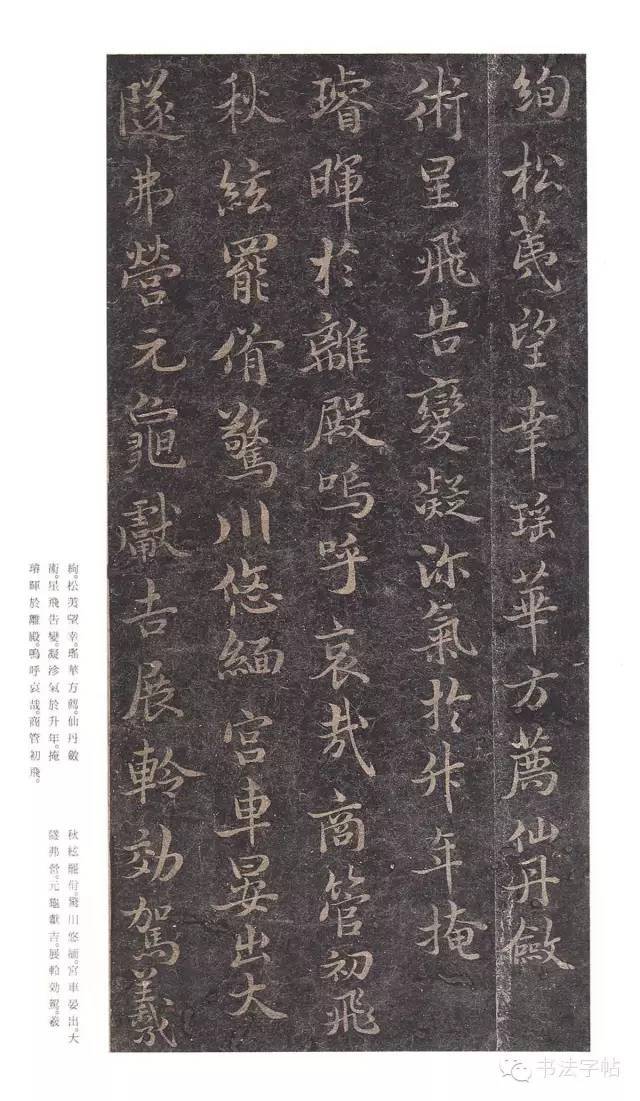 絢松荑望幸瑤華方薦仙丹斂
術星飛告變凝沴氣於升年掩
璿暉於離殿嗚呼哀哉商管初飛
秋絃罷佾驚川悠緬宮車晏出大
隧弗營元龜獻吉展軨効駕羲
絢。松荑望幸。瑤華方薦。仙丹斂
術。星飛告變。凝沴氣於升年。掩
璿暉於離殿。嗚呼哀哉。商管初飛。
秋絃罷佾。驚川悠緬。宮車晏出。大
隧弗營。元龜獻吉。展軨効駕。羲
书法字帖